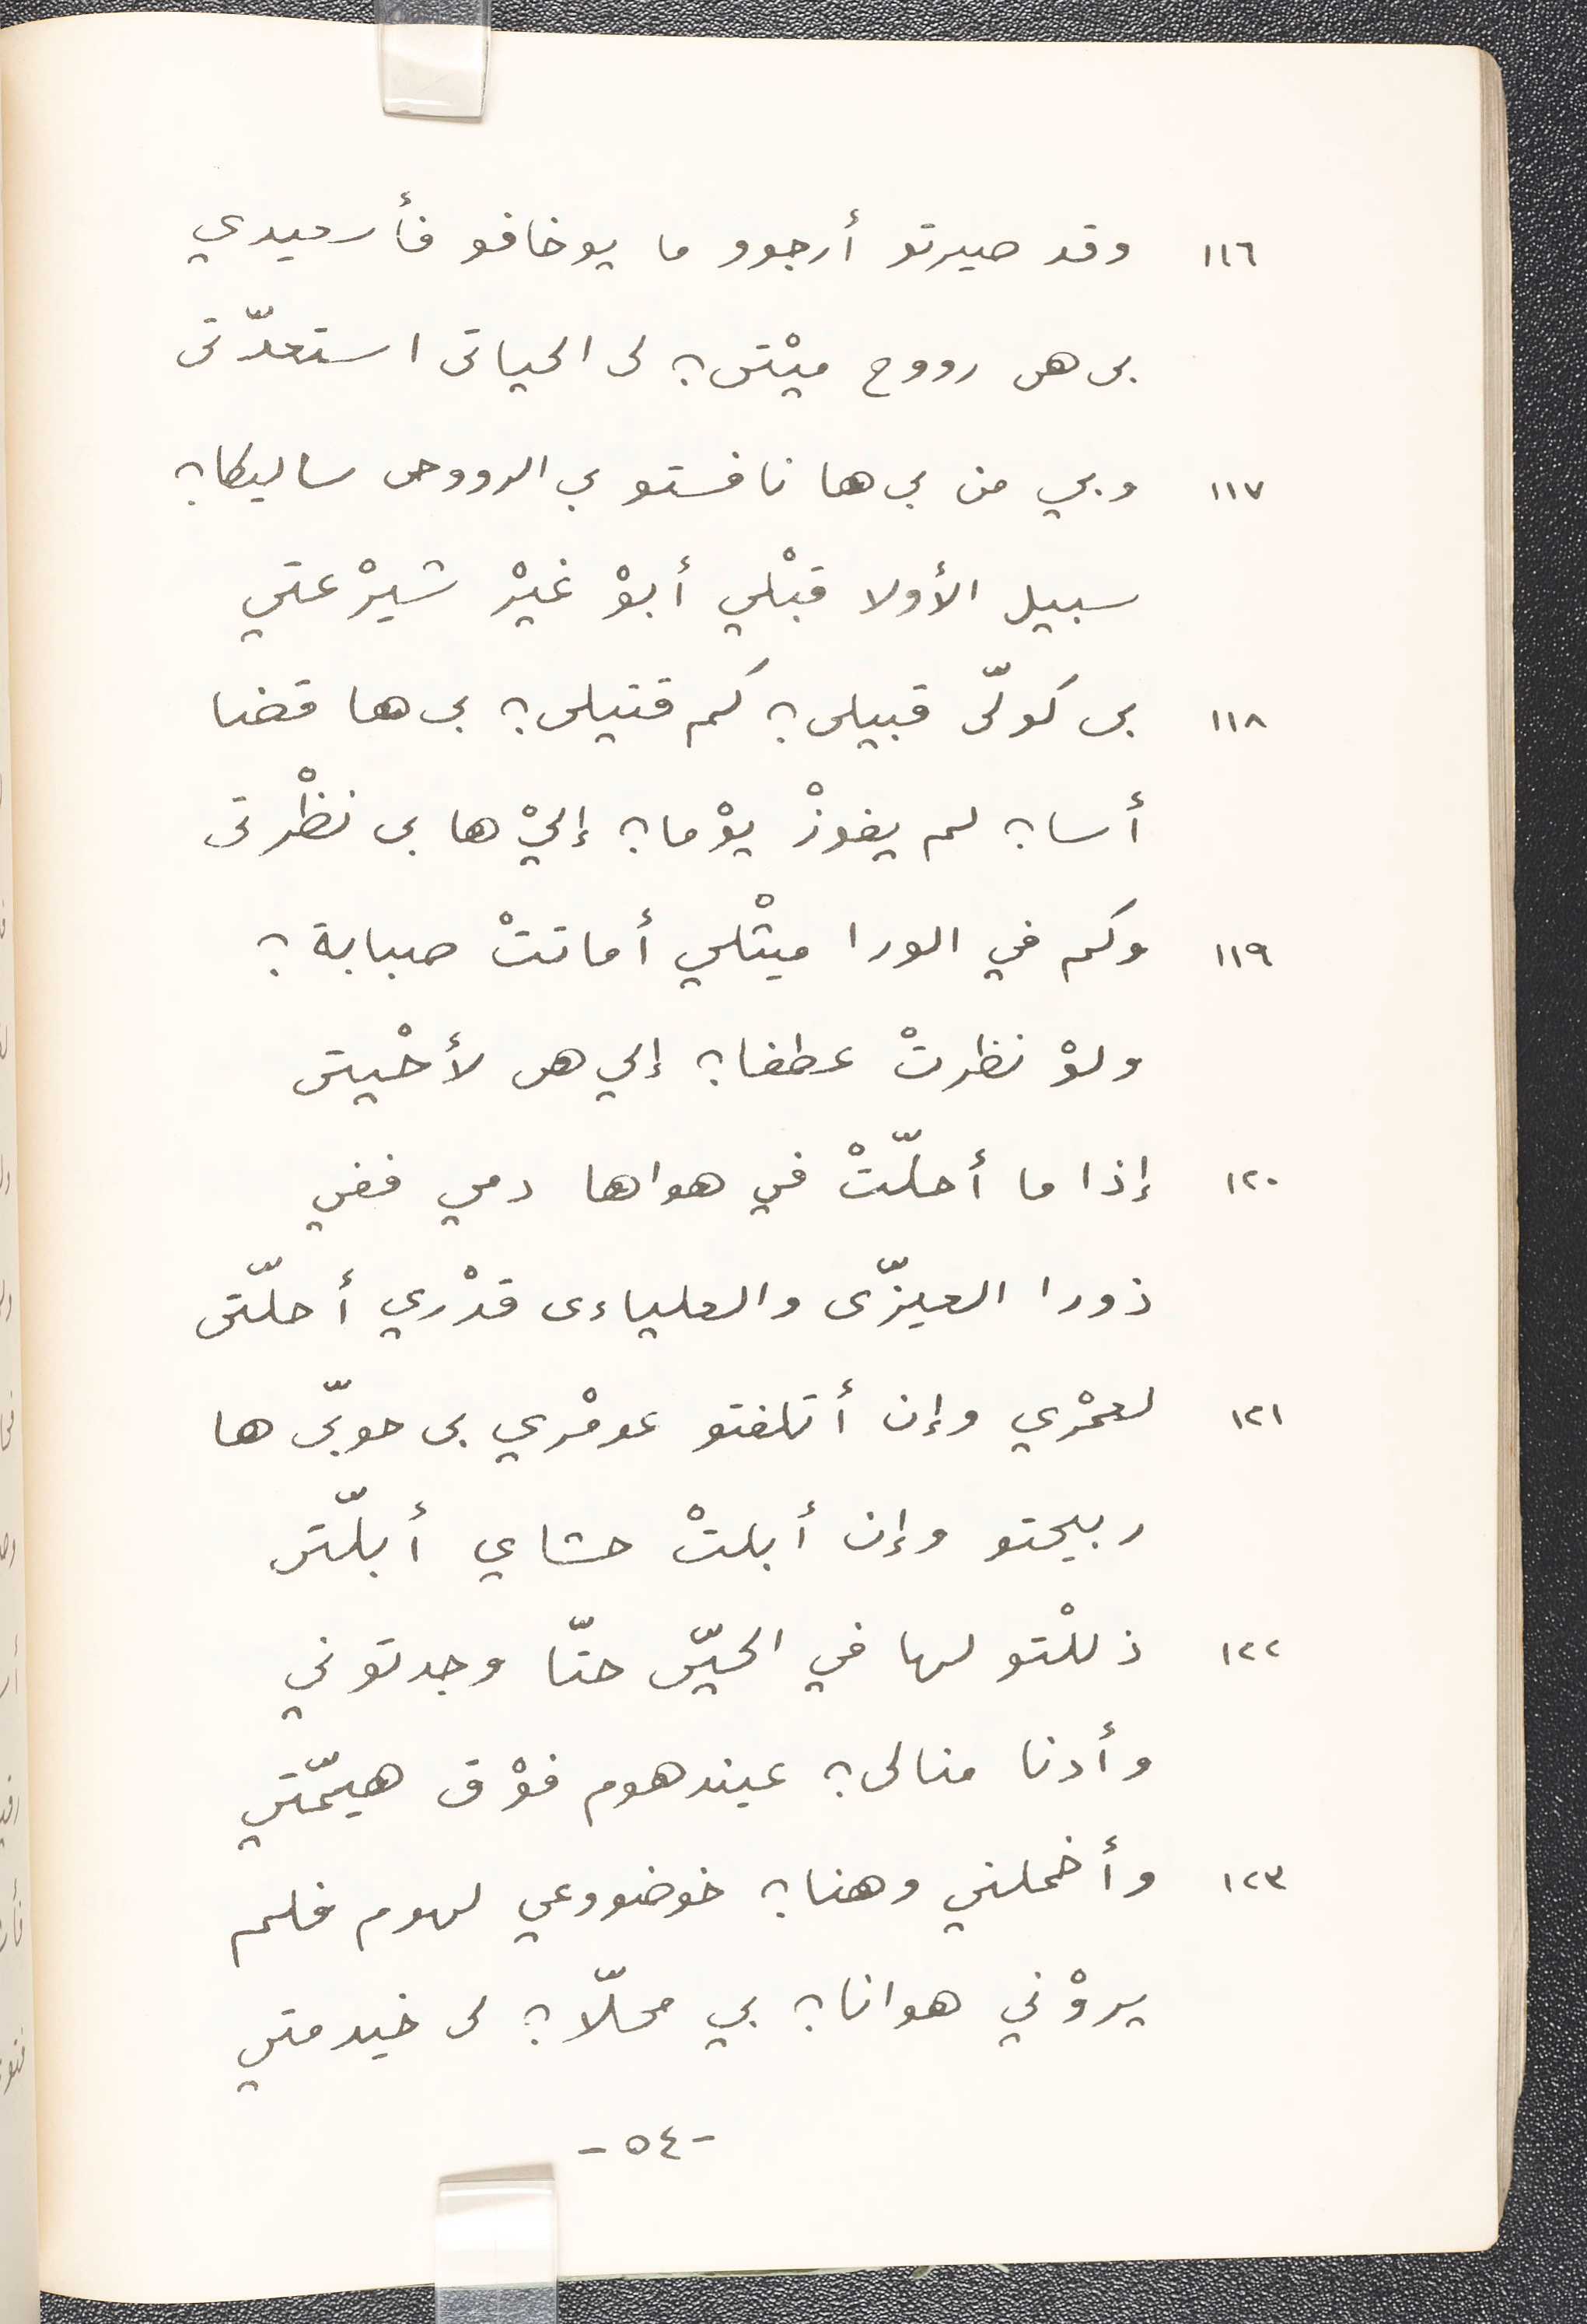 ١١٦ وقد صيرتو أرجوو ما يوخافو فأسعيدي
بى هى رووح ميْتى؟ لى الحياتى استعدّتى
١١٧ وبي من بي ها نافستو بي الرووحى ساليكا؟
سبيل الأولا قبْلي أبوْ غيْرْ شيرْعتي
١١٨ بى كولّى قبيلى؟ كم قتيلى؟ بى ها قضا
أسا؟ لم يفوزْ يوْما؟ إليْ ها بى نظْرتى
١١٩ وكم في الورا ميثْلي أماتتْ صبابة؟
ولوْ نظرتْ عطفا؟ إلي هى لأحْيتى
١٢٠ إذا ما أحلّتْ في هواها دمي ففي
ذورا العيزّى والعلياءى قدْري أحلّتى
١٢١ لعمْري وإن أتلفتو عومْري بى حوبّى ها
ربيحتو وإن أبلتْ حشاي أبلّتى
١٢٢ ذللْتو لها في الحيّى حتّا وجدتوني
وأدنا منالى؟ عيندهوم فوْق هيمّتي
١٢٣ وأخملني وهنا؟ خوضووعي لهوم فلم
يروْني هوانا؟ بي محلّا؟ لى خيدمتي
-٥٤-